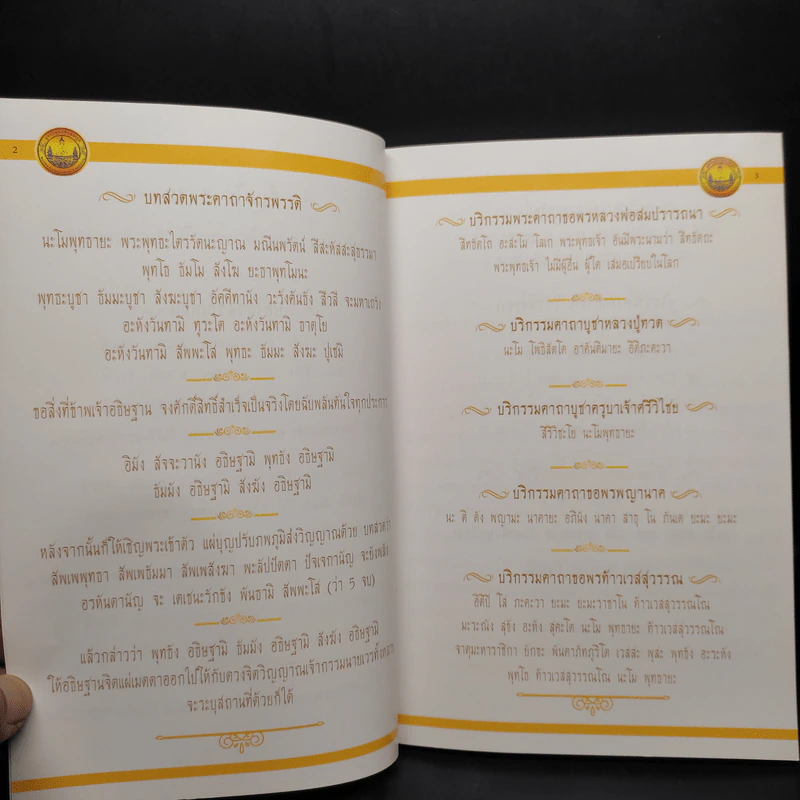 2
บทสวดพระคาถาจักรพรรดิ
นะโมพุทธายะ พระพุทธะไตรรัตนะญาณ มณีนพรัตน์ สีสะหัสสะสุธรรมา
พุทโธ ธัมโม สังโฆ ยะธาพุทโมนะ
พุทธะบูชา ธัมมะบูชา สังฆะบูชา อัคคีทานัง วะรังคันธัง สีวลี จะมหาเถรัง
อะหังวันทามิ ทุระโต อะหังวันทามิ ธาตุโย
อะหังวันทามิ สัพพะโส พุทธะ ธัมมะ สังฆะ ปูเชมิ
ขอสิ่งที่ข้าพเจ้าอธิษฐาน จงศักดิ์สิทธิ์สำเร็จเป็นจริงโดยฉับพลันทันใจทุกประการ
อิมัง สัจจะวานัง อธิษฐามิ พุทธัง อธิษฐามิ
ธัมมัง อธิษฐามิ สังฆัง อธิษฐามิ
หลังจากนั้นก็ให้เชิญพระเข้าตัว แผ่บุญปรับภพภูมิส่งวิญญาณด้วย บทสวดว่า
สัพเพพุทธา สัพเพธัมมา สัพเพสังฆา พะลัปปัตตา ปัจเจกานัญ จะยังพลัง
อรหันตานัญ จะ เตเชนะรักขัง พันธามิ สัพพะโส (ว่า 5 จบ)
แล้วกล่าวว่า พุทธัง อธิษฐามิ ธัมมัง อธิษฐามิ สังฆัง อธิษฐามิ
ให้อธิษฐานจิตแผ่เมตตาออกไปให้กับดวงจิตวิญญาณเจ้ากรรมนายเวร
จะระบุสถานที่ด้วยก็ได้
3
บริกรรมพระคาถาขอพรหลวงพ่อสมปรารถนา
สิทธัตโถ อะสะโม โลเก พระพุทธเจ้า อันมีพระนามว่า สิทธัตถะ
พระพุทธเจ้า ไม่มีผู้อื่น ผู้ใด เสมอเปรียบในโลก
บริกรรมคาถาบูชาหลวงปู่ทวด
นะโม โพธิสัตโต อาคันติมายะ อิติภะคะวา
บริกรรมคาถาบูชาครูบาเจ้าศรีวิไชย
สิริวิชะโย นะโมพุทธายะ
บริกรรมคาถาขอพรพญานาค
นะ ติ ตัง พญามะ นาคายะ อภินัง นาคา สาธุ โน กันเต ยะมะ ยะมะ
บริกรรมคาถาขอพรท้าวเวสสุวรรณ
อิติปิ โส ภะคะวา ยะมะ ยะมะราชาโน ท้าวเวสสุวรรณโณ
มะระณัง สุขัง อะหัง สุคะโต นะโม พุทธายะ ท้าวเวสสุวรรณโณ
จาตุมะหาราชิกา ยักขะ พันตาภัทภูริโต เวสสะ พุสะ พุทธัง อะระหัง
พุทโธ ท้าวเวสสุวรรณโณ นะโม พุทธายะ